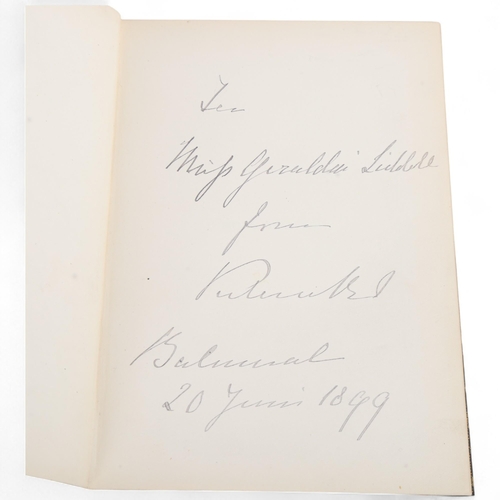 To
Miss Geraldine Liddell
from
Victoria R I
Balmoral
20 June 1899